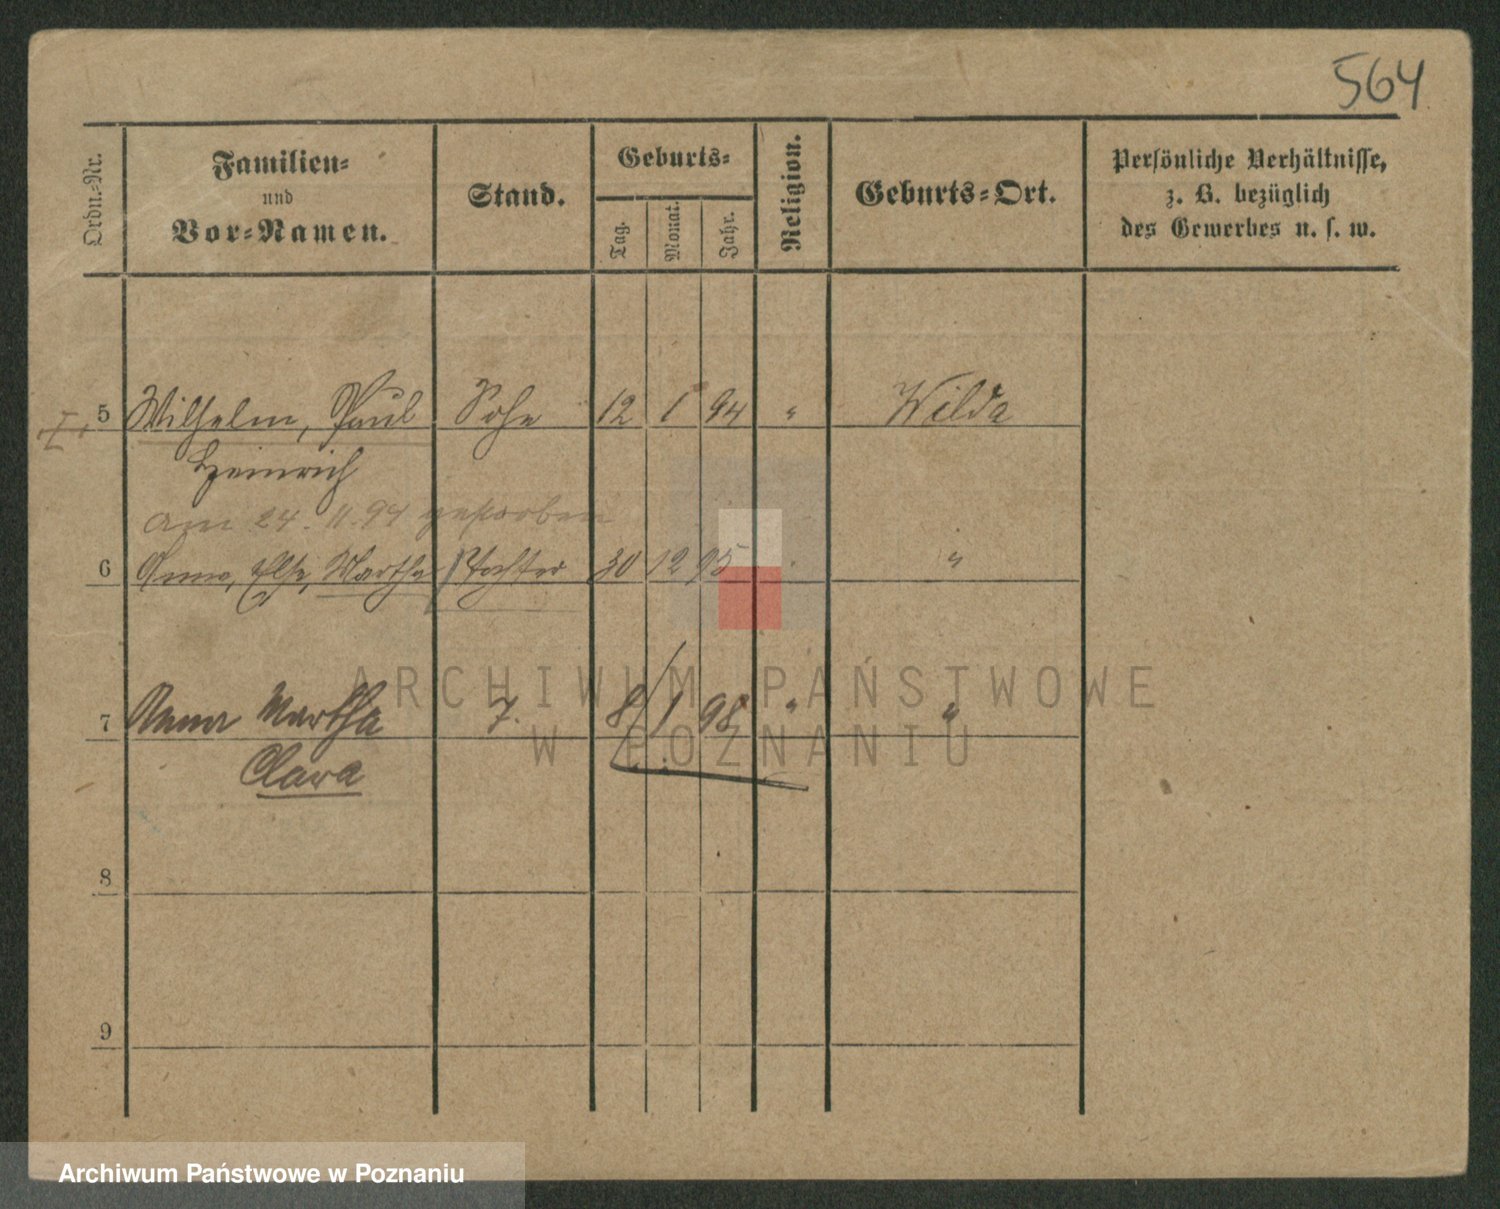 564
Ordn.-Nr.
Familien-
und
Vor-Namen.
Stand.
Geburts-
Tag.
Monat.
Jahr.
Religion.
Geburts-Ort.
Persönliche Verhältnisse,
z. B. bezüglich
des Gewerbes u. s. w.
5 Wilhelm, Paul Sohn 12 1 94 " Wilda
Heinrich
am 24. 11. 94 gestorben
6 Anna, Else, Martha Tochter 30 12 95 "
7 Anna Martha T. 8/1 98 " "
Clara
8
9
ARCHIWUM PAŃSTWOWE
W POZNANIU
Archiwum Państwowe w Poznaniu